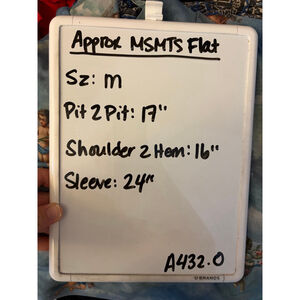 Approx MSMTS Flat
Sz: m
Pit 2 Pit: 17"
Shoulder 2 Hem: 16"
Sleeve: 24"
A432.0
U BRANDS